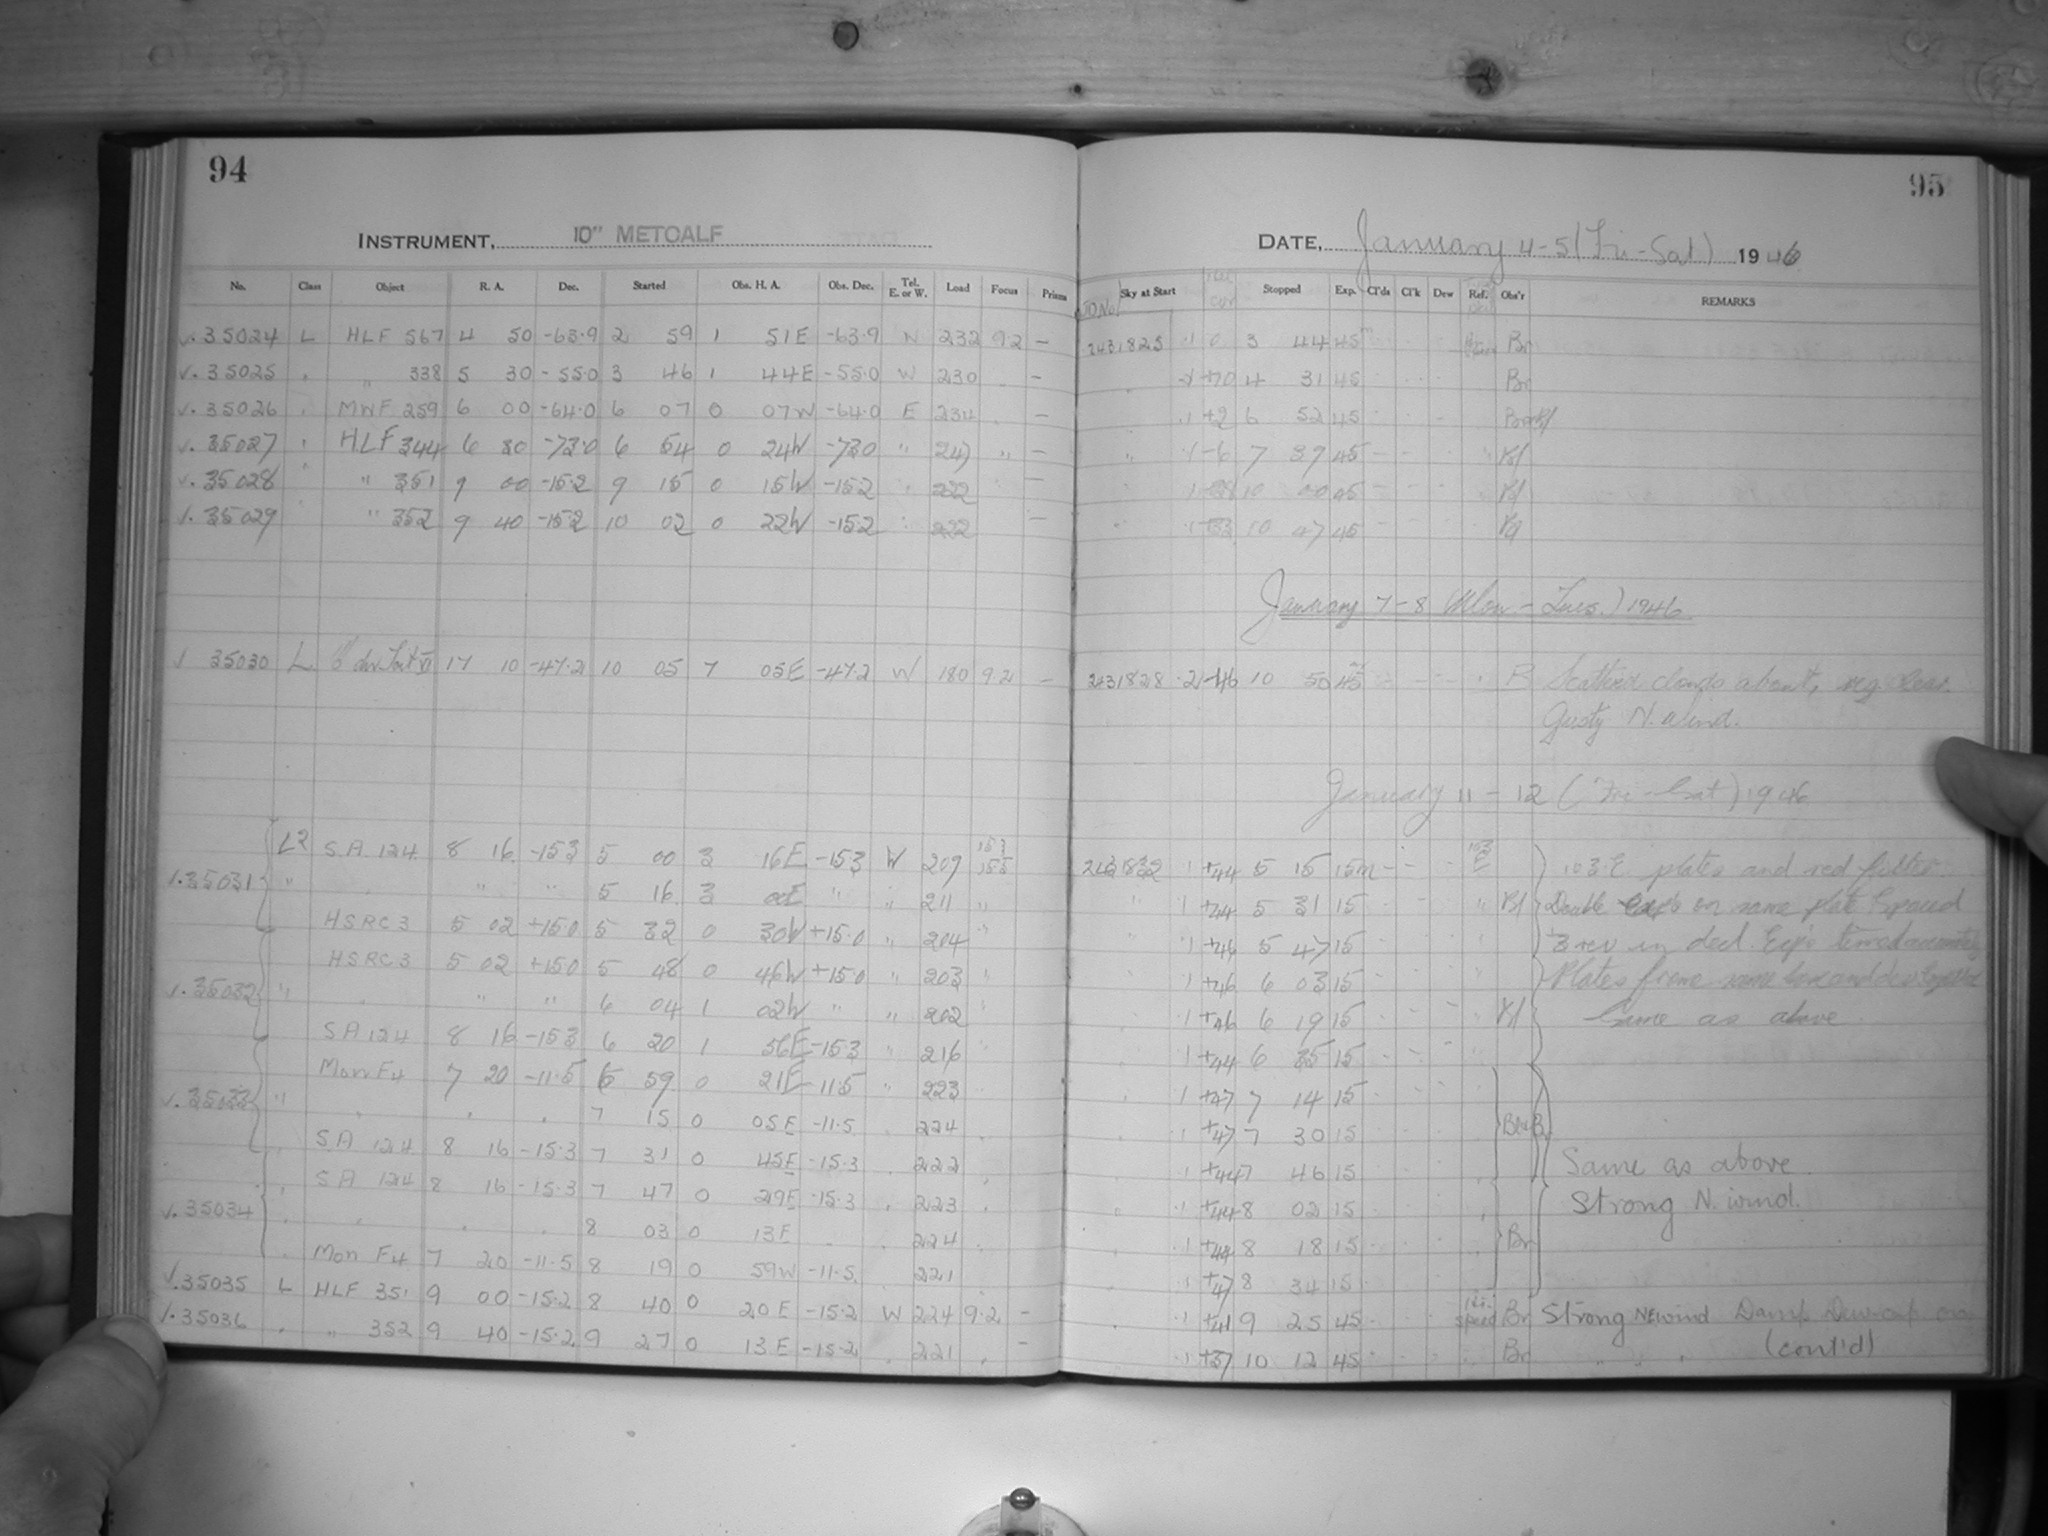 94
95
INSTRUMENT, 10" METCALF
DATE, January 4-5 (Fri-Sat) 1946
No. Class Object R. A. Dec. Started Obs. H. A. Obs. Dec. Tel. E. or W. Load Focus Prism Sky at Start Stopped Exp. Cl'ds Cl'k Dew Ref. Obs'r REMARKS
JD No.
v. 35024 L HLF 567 4 50 -63.9 2 59 1 51E -63.9 W 232 9.2 — 2431825 .1 0 3 44 45m Br
v. 35025 " " 338 5 30 -55.0 3 46 1 44E -55.0 W 230 — 4 31 45 Br
v. 35026 " MWF 259 6 00 -64.0 6 07 0 07W -64.0 E 234 — .1 +2 6 52 45
v. 35027 " HLF 344 6 30 -73.0 6 54 0 24W -73.0 " 247 " — " .1 -6 7 39 45 Bl
v. 35028 " " 351 9 00 -15.2 9 15 0 15W -15.2 222 — 10 00 45 Bl
v. 35029 " 352 9 40 -15.2 10 02 0 22W -15.2 222 — 10 47 45
January 7-8 (Mon.-Tues.) 1946
v 35030 L 17 10 -47.2 10 05 7 05E -47.2 W 180 9.2 — 2431828 .2 -46 10 50 45m B Scattered clouds about, reg. clear.
Gusty N. Wind.
January 11-12 (Fri-Sat) 1946
L2 SA 124 8 16 -15.3 5 00 3 16E -15.3 W 209 153 155 2431832 .1 +44 5 15 15m 103 E 103.E. plates and red filter.
v. 35031 " " " 5 16 3 00E " " 211 " " .1 +44 5 31 15 " Bl Double exp's on same plate spaced
HSRC3 5 02 +15.0 5 32 0 30W +15.0 " 204 " " .1 +46 5 47 15 3 rev in decl. Exp's timed accurately
HSRC3 5 02 +15.0 5 48 0 46W +15.0 " 203 " .1 +46 6 03 15 Plates from same box and developed
v. 35032 " " " 6 04 1 02W " " 202 " .1 +46 6 19 15 Bl Same as above.
SA 124 8 16 -15.3 6 20 1 56E -15.3 " 216 " .1 +44 6 35 15
Mon F4 7 20 -11.5 6 59 0 21E -11.5 " 223 .1 +47 7 14 15
v. 35033 " " " " 7 15 0 05E -11.5 " 224 .1 +47 7 30 15
SA 124 8 16 -15.3 7 31 0 45E -15.3 222 .1 +44 7 46 15 Same as above
SA 124 8 16 -15.3 7 47 0 29E -15.3 223 .1 +44 8 02 15 Strong N. wind.
v. 35034 " " " 8 03 0 13E 224 .1 +44 8 18 15 Br
Mon F4 7 20 -11.5 8 19 0 59W -11.5 221 .1 +47 8 34 15
v. 35035 L HLF 351 9 00 -15.2 8 40 0 20E -15.2 W 224 9.2 — .1 +41 9 25 45 speed Br Strong NE wind Damp Dewcap on
v. 35036 " " 352 9 40 -15.2 9 27 0 13E -15.2 221 — .1 +37 10 12 45 Br " " " (cont'd)